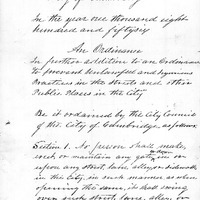 In the year one thousand eight
hundred and fifty
An Ordinance
In further addition to an Ordinance
to prevent unlawful and injurious
Practices in the Streets and other
Public Places in the City
Be it ordained by the City Council
of the City of Cambridge, as follows
Section 1. No person shall make,
erect or maintain any gate, in or
upon any street, lane, alley, or sidewalk
in the city, in such manner as when
opening the same, it shall swing
over such street, lane, alley, or